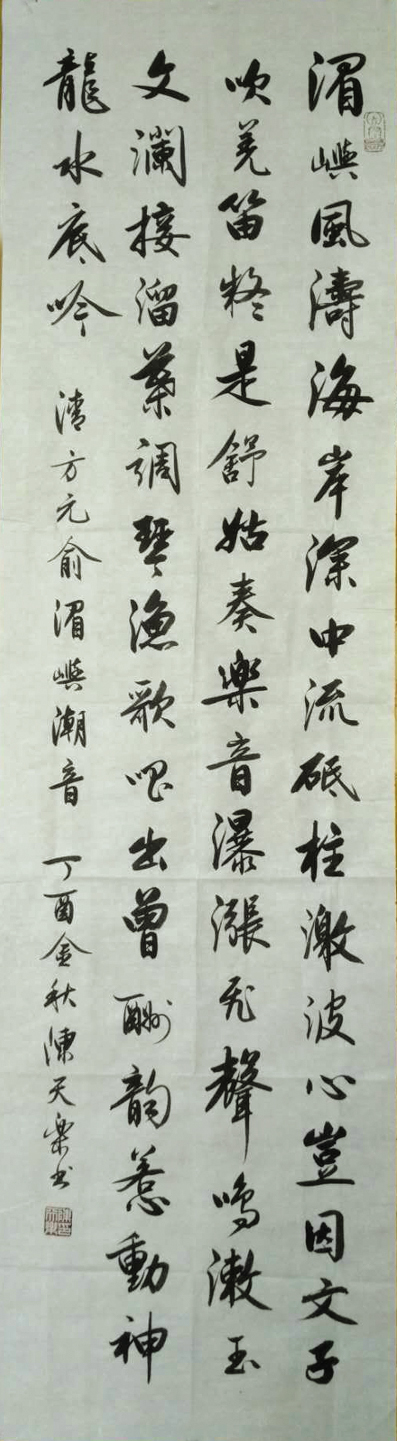 湄嶼風濤海岸深中流砥柱激波心豈因文子
吹羌笛疑是舒姑奏樂音瀑漲飛聲鳴漱玉
文瀾接溜葉調琴漁歌唱出曾酬韻惹動神
龍水底吟 清方元俞湄嶼潮音 丁酉金秋陳天樂书